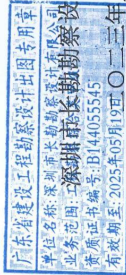 广东省建设工程勘察设计出图专用章
单位名称:深圳市长勘勘察设计有限公司
业务范围:
资质证书编号:B144055545
有效期至:2025年05月19日
深圳市长勘勘察设
二〇二三年